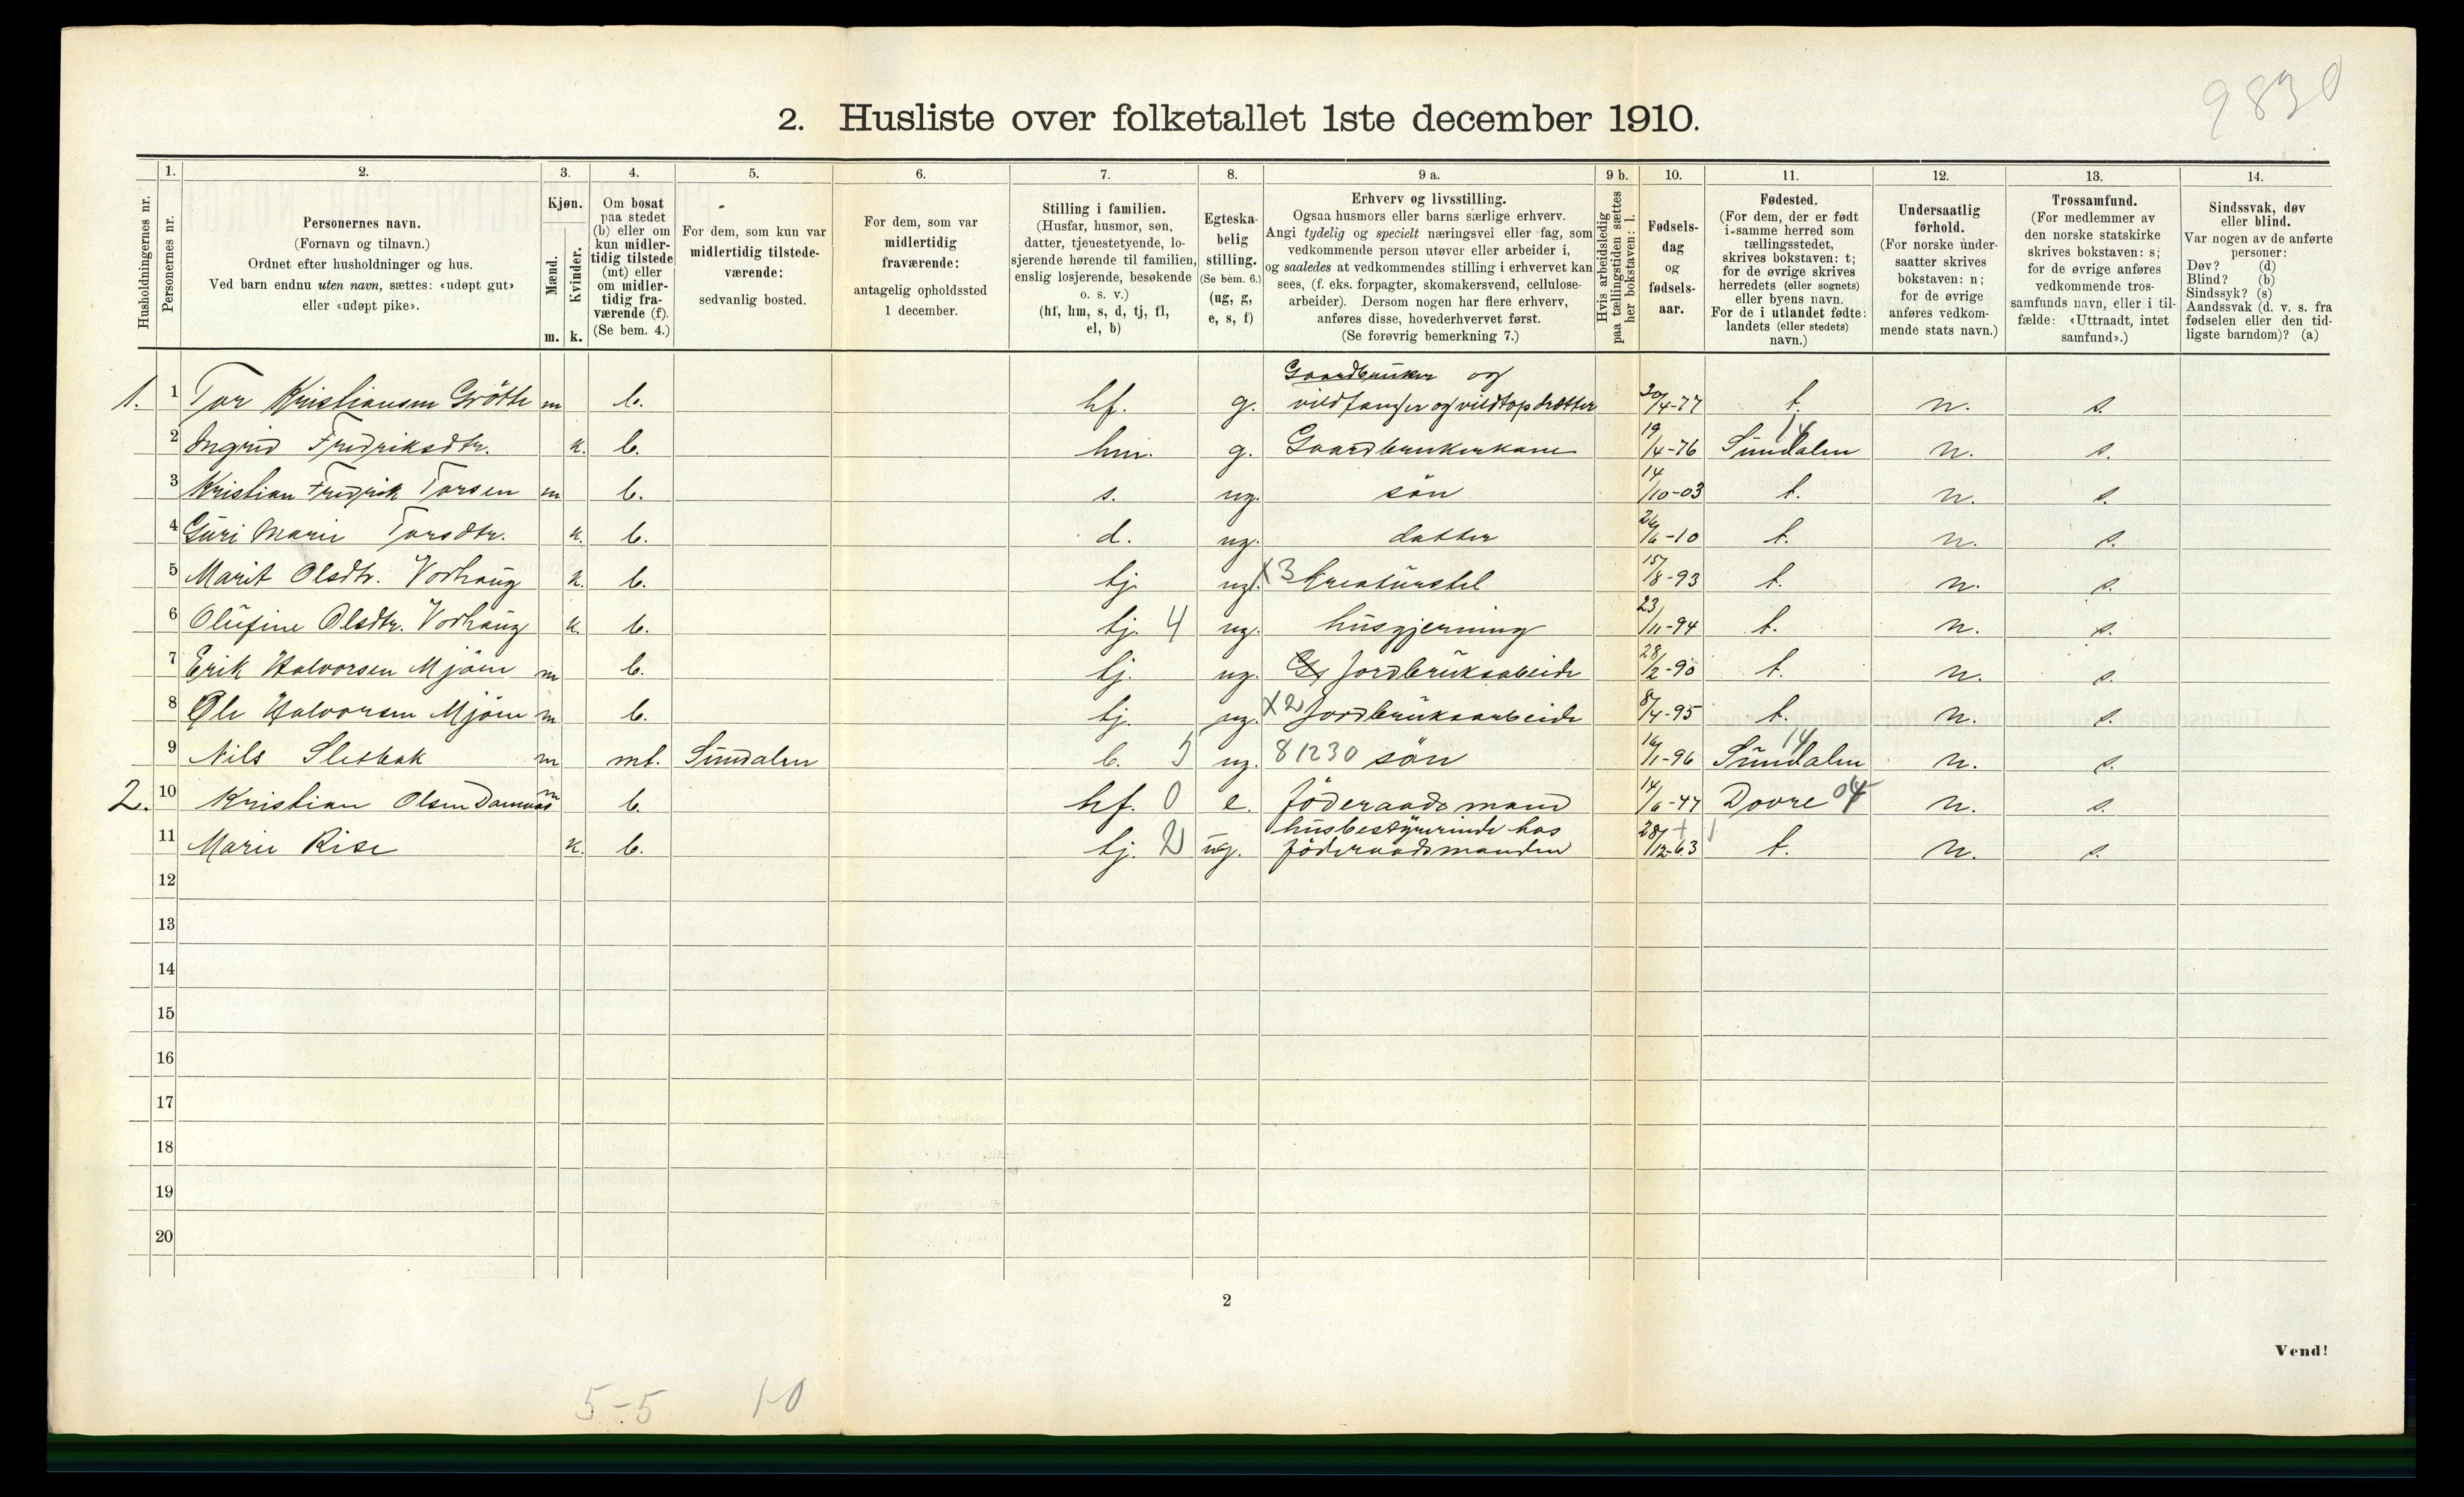 9830
2. Husliste over folketallet 1ste december 1910.
Husholdningernes nr.
1. Personernes nr.
2. Personernes navn.
(Fornavn og tilnavn.)
Ordnet efter husholdninger og hus.
Ved barn endnu uten navn, sættes: «udøpt gut»
eller «udøpt pike».
3. Kjøn.
Mænd. m.
Kvinder. k.
4. Om bosat
paa stedet
(b) eller om
kun midler-
tidig tilstede
(mt) eller
om midler-
tidig fra-
værende (f).
(Se bem. 4.)
5. For dem, som kun var
midlertidig tilstede-
værende:
sedvanlig bosted.
6. For dem, som var
midlertidig
fraværende:
antagelig opholdssted
1 december.
7. Stilling i familien.
(Husfar, husmor, søn,
datter, tjenestetyende, lo-
sjerende hørende til familien,
enslig losjerende, besøkende
o. s. v.)
(hf, hm, s, d, tj, fl,
el, b)
8. Egteska-
belig
stilling.
(Se bem. 6.)
(ug, g,
e, s, f)
9 a. Erhverv og livsstilling.
Ogsaa husmors eller barns særlige erhverv.
Angi tydelig og specielt næringsvei eller fag, som
vedkommende person utøver eller arbeider i,
og saaledes at vedkommendes stilling i erhvervet kan
sees, (f. eks. forpagter, skomakersvend, cellulose-
arbeider). Dersom nogen har flere erhverv,
anføres disse, hovederhvervet først.
(Se forøvrig bemerkning 7.)
9 b. Hvis arbeidsledig
paa tællingstiden sættes
her bokstaven: l.
10. Fødsels-
dag
og
fødsels-
aar.
11. Fødested.
(For dem, der er født
i samme herred som
tællingsstedet,
skrives bokstaven: t;
for de øvrige skrives
herredets (eller sognets)
eller byens navn.
For de i utlandet fødte:
landets (eller stedets)
navn.)
12. Undersaatlig
forhold.
(For norske under-
saatter skrives
bokstaven: n;
for de øvrige
anføres vedkom-
mende stats navn.)
13. Trossamfund.
(For medlemmer av
den norske statskirke
skrives bokstaven: s;
for de øvrige anføres
vedkommende tros-
samfunds navn, eller i til-
fælde: «Uttraadt, intet
samfund».)
14. Sindssvak, døv
eller blind.
Var nogen av de anførte
personer:
Døv? (d)
Blind? (b)
Sindssyk? (s)
Aandssvak (d. v. s. fra
fødselen eller den tid-
ligste barndom)? (a)
Gaardbruker og
1. 1 Tor Kristiansen Gröthe m b. hf. g. vildfanger og vildtopdrætter 20/4-77 t. n. s.
2 Ingrid Fredriksdtr. k. b. hm. g. Gaardbrukerkone 19/4-76 Sundalen 14 n. s.
3 Kristian Fredrik Torsen m b. s. ug. sön 14/10-03 t. n. s.
4 Guri Marie Torsdtr. k. b. d. ug. datter 26/6-10 t. n. s.
5 Marit Olsdtr. Vorhaug k. b. tj. ug. X3 kreaturstel 15/8-93 t. n. s.
6 Olufine Olsdtr. Vorhaug k. b. tj. 4 ug. husgjerning 23/11-94 t. n. s.
7 Erik Halvorsen Mjöen m b. tj. ug. jordbruksarbeide 28/2-90 t. n. s.
8 Ole Halvorsen Mjöen m b. tj. ug. X2 Jordbruksarbeide 8/4-95 t. n. s.
9 Nils Sletbak m mt. Sundalen b. 5 ug. 81230 sön 16/1-96 Sundalen 14 n. s.
2. 10 Kristian Olsen Damnas m b. hf. 0 e. föderaadsmand 14/6-47 Dovre 04 n. s.
husbestyrerinde hos
11 Marie Rise k. b. tj. 2 ug. föderaadsmanden 28/12-63 t. n. s.
12
13
14
15
16
17
18
19
20
2
Vend!
5-5 1-0